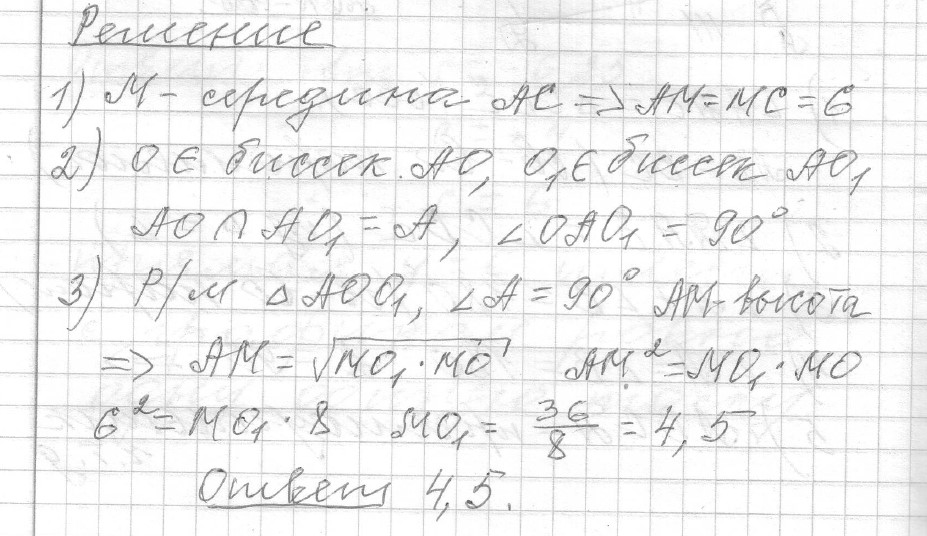 Решение
1) M - середина AC => AM = MC = 6
2) O ∈ биссек. AO, O₁ ∈ биссек AO₁
AO ∩ AO₁ = A, ∠OAO₁ = 90°
3) Р/м △AOO₁, ∠A = 90° AM - высота
=> AM = √MO₁ · MO AM² = MO₁ · MO
6² = MO₁ · 8 MO₁ = 36/8 = 4,5
Ответ 4,5.